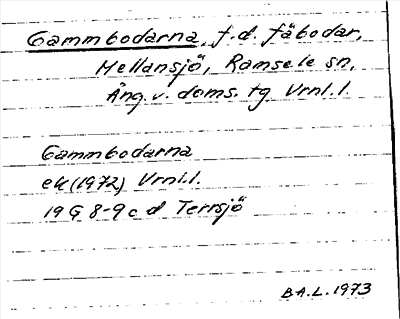 Gammbodarna, f.d. fäbodar,
Mellansjö, Ramsele sn,
Ång. v. doms. tg. Vrnl.l.
Gammbodarna
ek (1972) Vrnl.l.
19 G 8-9 c d Terrsjö
B A.L. 1973